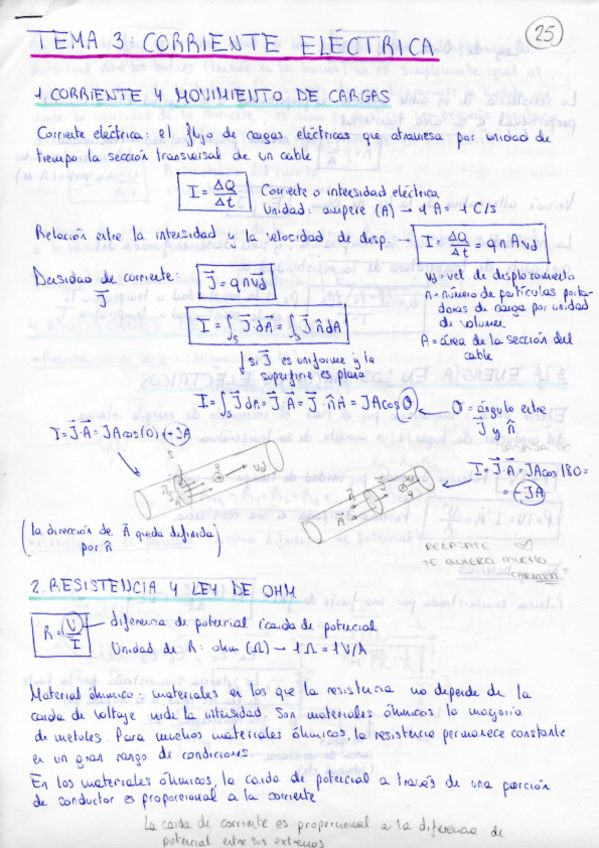 25
TEMA 3: CORRIENTE ELÉCTRICA
1. CORRIENTE Y MOVIMIENTO DE CARGAS
Corriente eléctrica: el flujo de cargas eléctricas que atraviesa por unidad de
tiempo la sección transversal de un cable
I = ΔQ/Δt Corriente o intensidad eléctrica
Unidad: ampere (A) → 1 A = 1 C/s
Relación entre la intensidad y la velocidad de desp. → I = ΔQ/Δt = q n A vd
Densidad de corriente: J⃗ = q n v⃗d
J⃗
vd = vel. de desplazamiento
n = número de partículas porta-
doras de carga por unidad
de volumen
A = área de la sección del
cable
I = ∫s J⃗·dA⃗ = ∫s J⃗·n̂ dA
si J⃗ es uniforme y la
superficie es plana
I = ∫s J⃗ dA = J⃗·A⃗ = J⃗·n̂ A = JA cos θ → θ = ángulo entre
J⃗ y n̂
I = J⃗·A⃗ = JA cos(0) = JA
I = J⃗·A⃗ = JA cos 180 =
= -JA
(la dirección de A⃗ queda definida
por n̂)
RELAJATE
TE QUIERO MUCHO
CARMEN
2. RESISTENCIA Y LEY DE OHM
R = V/I → diferencia de potencial / caída de potencial
Unidad de R: ohm (Ω) → 1 Ω = 1 V/A
Material óhmico: materiales en los que la resistencia no depende de la
caída de voltaje ni de la intensidad. Son materiales óhmicos, la mayoría
de metales. Para muchos materiales óhmicos, la resistencia permanece constante
en un gran rango de condiciones.
En los materiales óhmicos, la caída de potencial a través de una porción
de conductor es proporcional a la corriente
La caída de corriente es proporcional a la diferencia de
potencial entre sus extremos